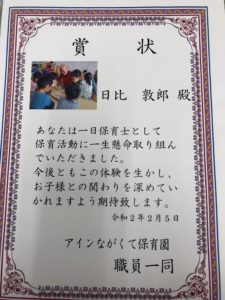 賞状
日比 敦郎 殿
あなたは一日保育士として
保育活動に一生懸命取り組ん
でいただきました。
今後ともこの体験を生かし、
お子様との関わりを深めてい
かれますよう期待致します。
令和2年2月5日
アインながくて保育園
職員一同